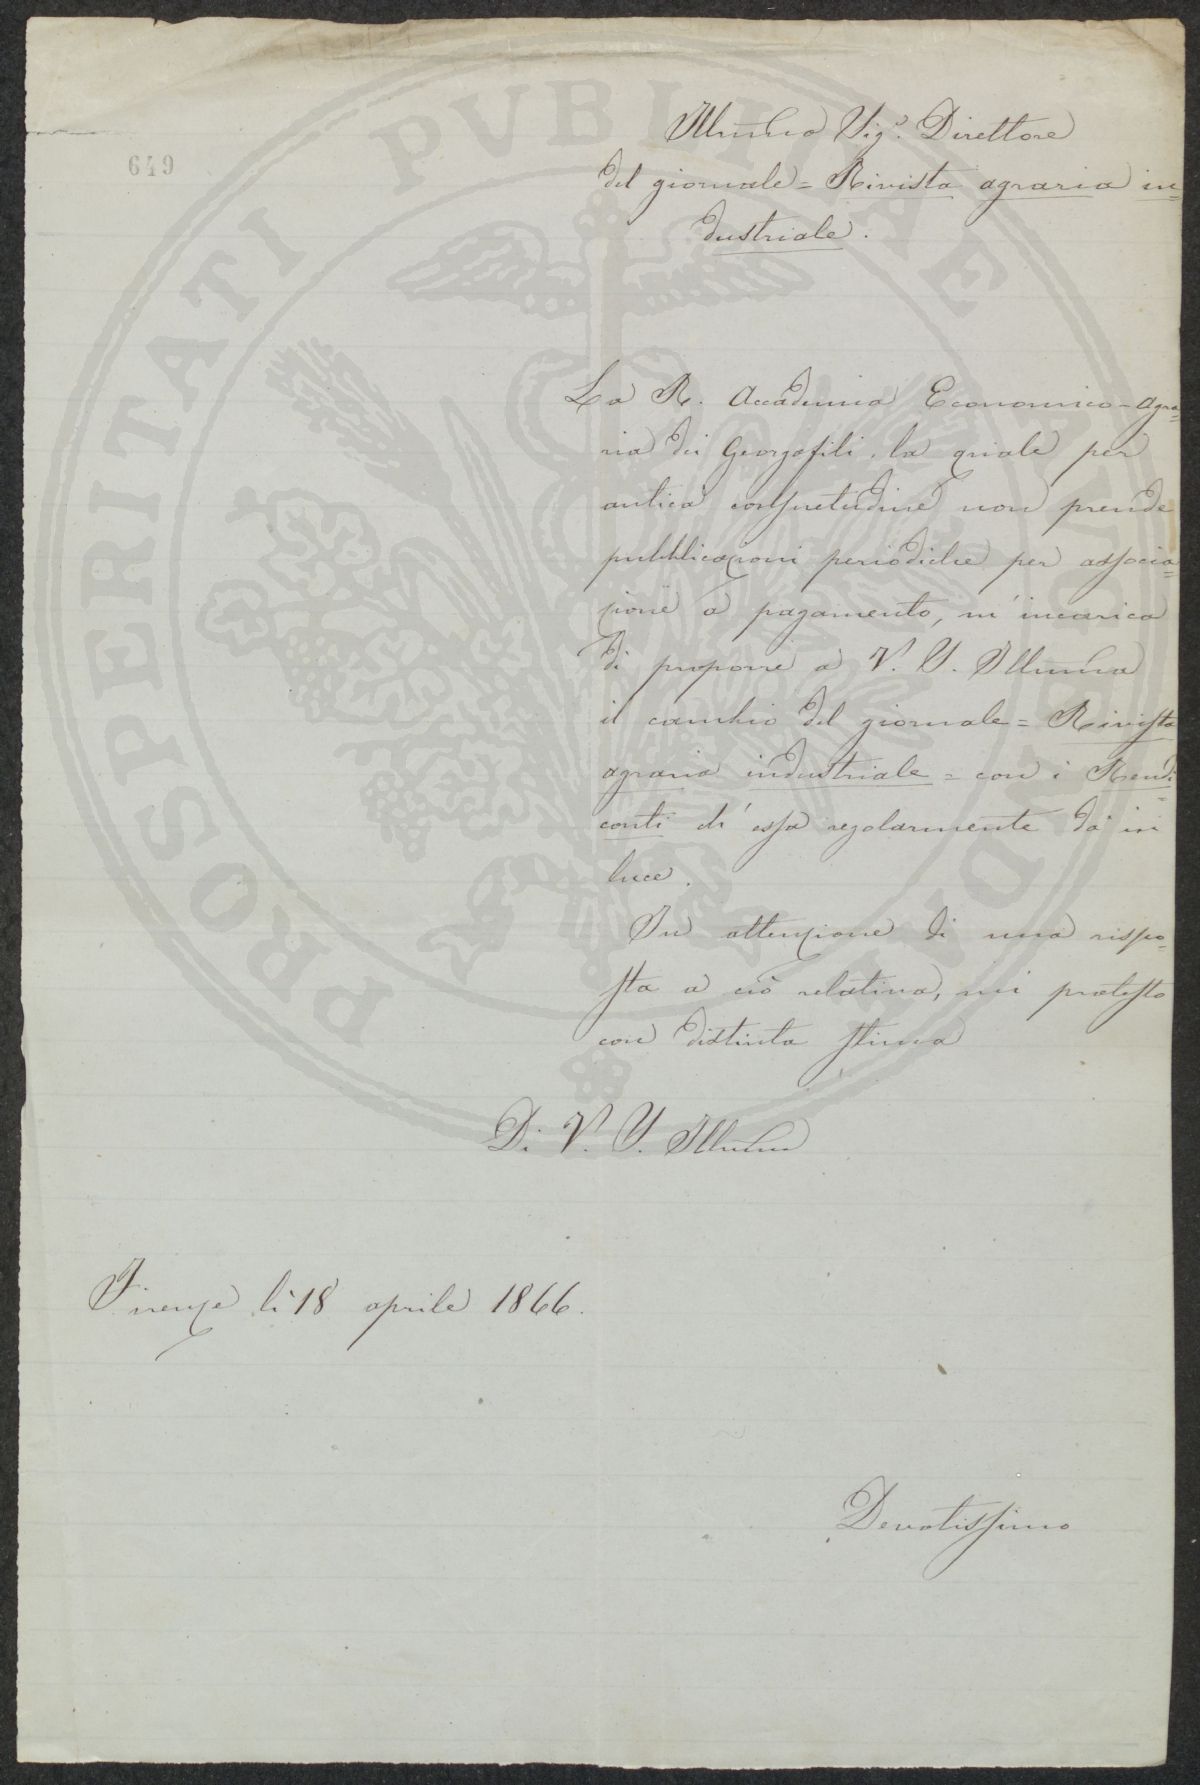 649
Illmo Sigr. Direttore
del giornale = Rivista agraria in=
dustriale.
La R. Accademia Economico-Agra=
ria dei Georgofili, la quale per
antica consuetudine non prende
pubblicazioni periodiche per associa=
zione a pagamento, m'incarica
di proporre a V. S. Illma
il cambio del giornale = Rivista
agraria industriale = con i Rendi=
conti ch'essa regolarmente dà in
luce.
In attenzione di una rispo=
sta a ciò relativa, mi protesto
con distinta stima
Di V. S. Illma
Firenze lì 18 aprile 1866.
Devotissimo
PROSPERITATI PVBLICAE